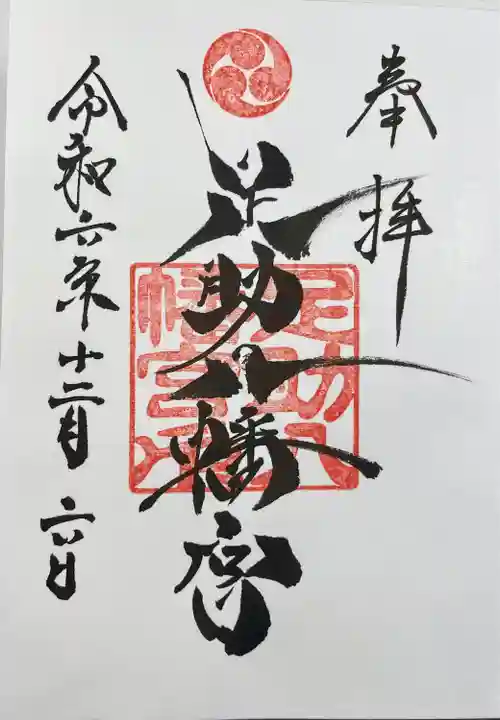 奉拝
足助八幡宮
令和六年十二月六日